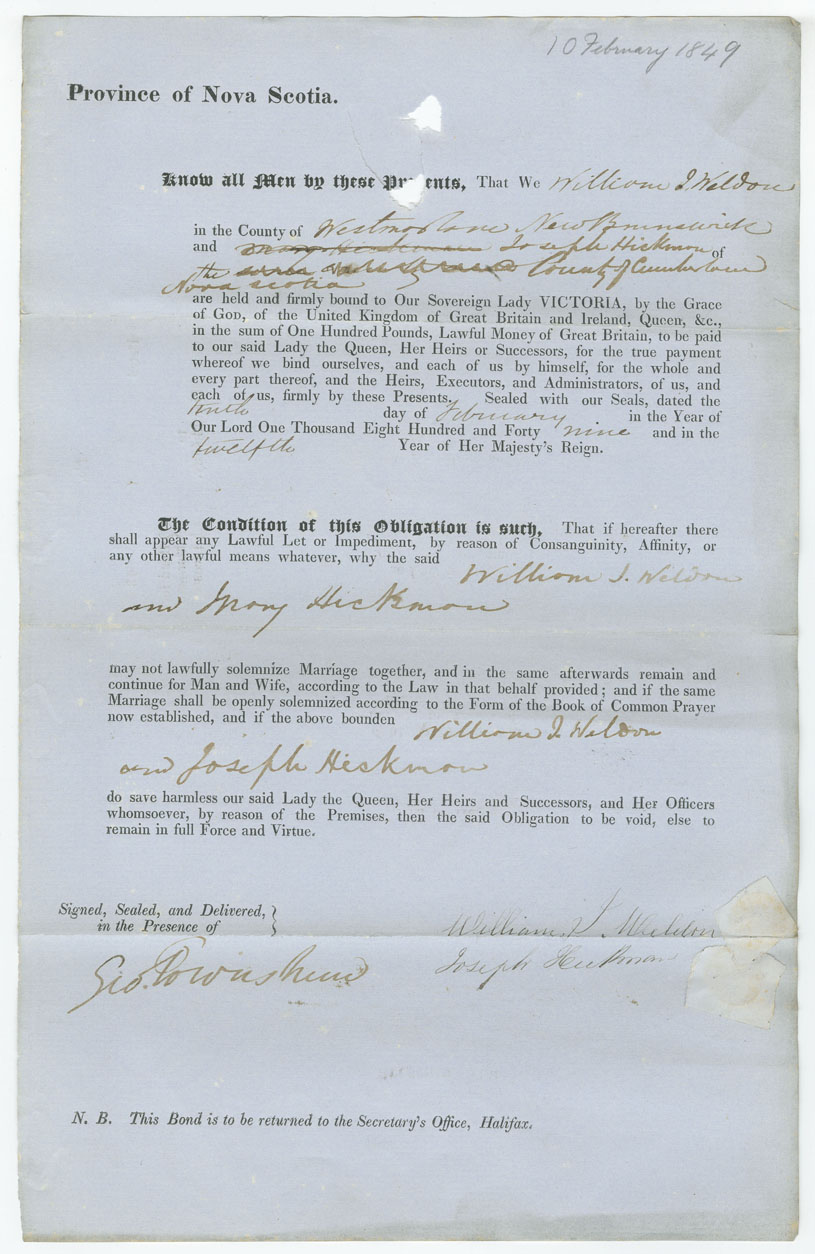 10 February 1849
Province of Nova Scotia.
Know all Men by these Pr ents, That We William J. Weldon
in the County of Westmorland New Brunswick
and Mary Hickman Joseph Hickman of
the County of Cumberland
Nova Scotia
are held and firmly bound to Our Sovereign Lady VICTORIA, by the Grace
of GOD, of the United Kingdom of Great Britain and Ireland, Queen, &c.,
in the sum of One Hundred Pounds, Lawful Money of Great Britain, to be paid
to our said Lady the Queen, Her Heirs or Successors, for the true payment
whereof we bind ourselves, and each of us by himself, for the whole and
every part thereof, and the Heirs, Executors, and Administrators, of us, and
each of us, firmly by these Presents. Sealed with our Seals, dated the
tenth day of February in the Year of
Our Lord One Thousand Eight Hundred and Forty nine and in the
twelfth Year of Her Majesty's Reign.
The Condition of this Obligation is such, That if hereafter there
shall appear any Lawful Let or Impediment, by reason of Consanguinity, Affinity, or
any other lawful means whatever, why the said
William J. Weldon
and Mary Hickman
may not lawfully solemnize Marriage together, and in the same afterwards remain and
continue for Man and Wife, according to the Law in that behalf provided; and if the same
Marriage shall be openly solemnized according to the Form of the Book of Common Prayer
now established, and if the above bounden William J. Weldon
and Joseph Hickman
do save harmless our said Lady the Queen, Her Heirs and Successors, and Her Officers
whomsoever, by reason of the Premises, then the said Obligation to be void, else to
remain in full Force and Virtue.
Signed, Sealed, and Delivered,
in the Presence of
William J. Weldon
Joseph Hickman
Geo. Townshend
N. B. This Bond is to be returned to the Secretary's Office, Halifax.